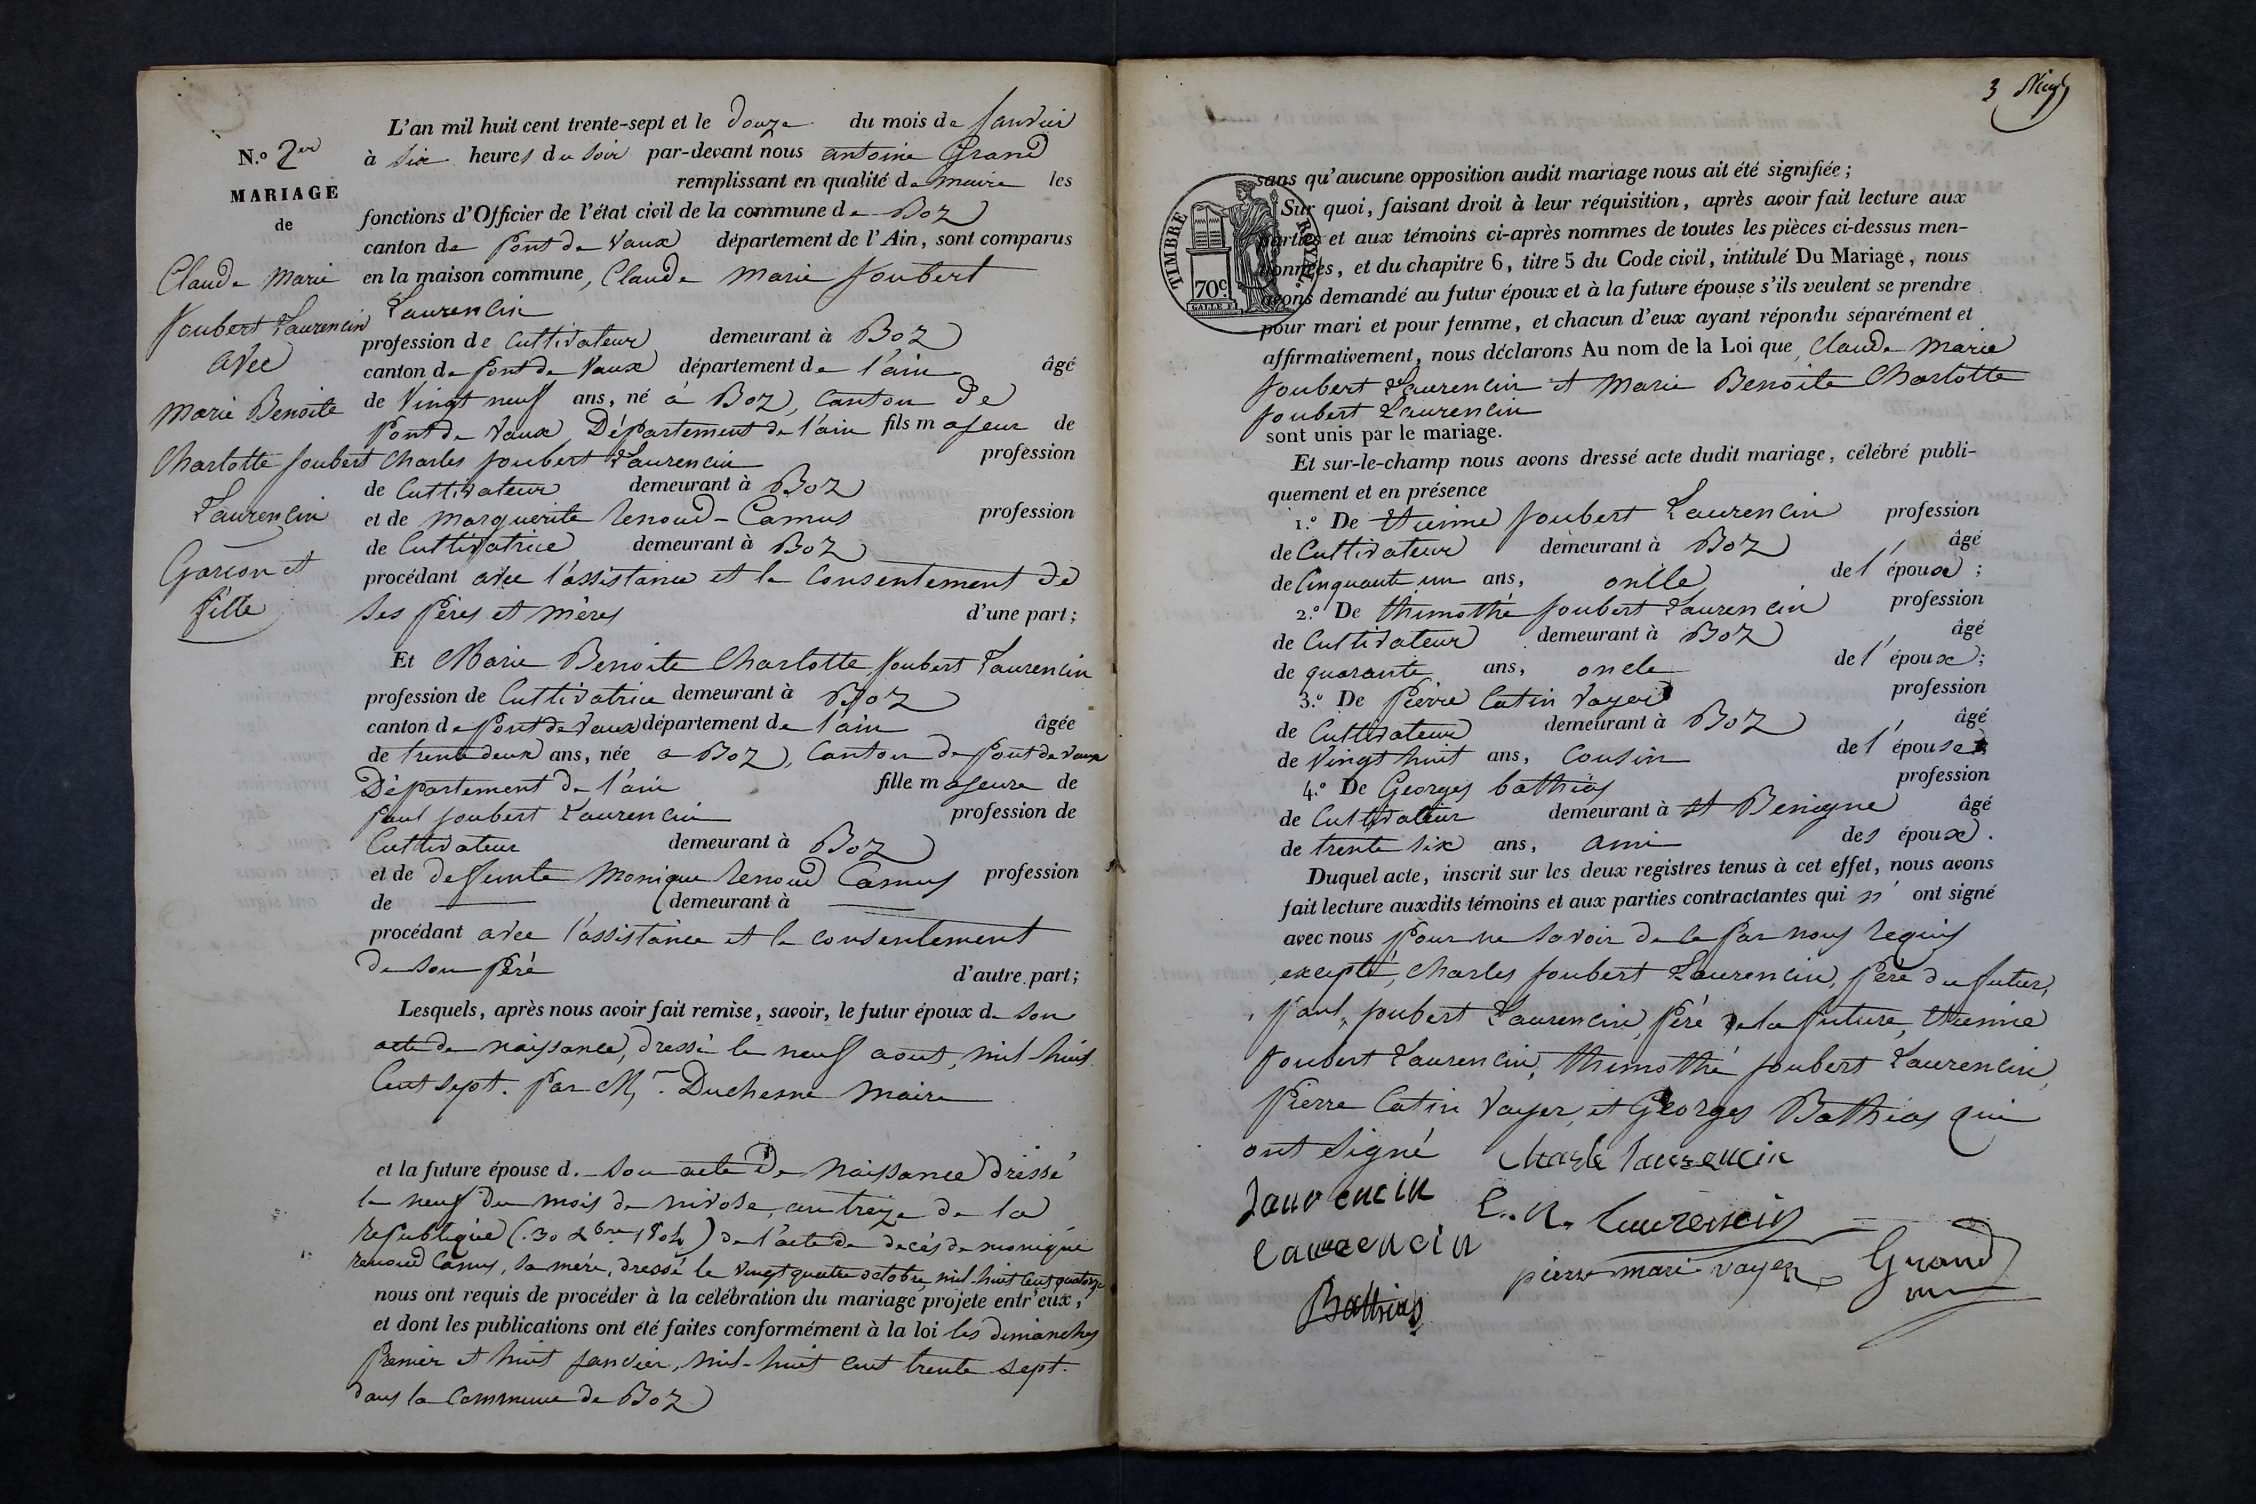 N.o 2em
MARIAGE
de
Claude Marie
Joubert Laurencin
avec
Marie Benoite
Charlotte Joubert
Laurencin
Garçon et
fille
L'an mil huit cent trente-sept et le douze du mois de Janvier
à six heures du soir par-devant nous antoine Grand
remplissant en qualité de maire les
fonctions d'Officier de l'état civil de la commune de Boz
canton de Pont de Vaux département de l'Ain, sont comparus
en la maison commune, Claude Marie Joubert
Laurencin
profession de Cultivateur demeurant à Boz
canton de Pont de Vaux département de l'ain âgé
de Vingt neuf ans, né à Boz, Canton de
Pont de Vaux Département de l'ain fils majeur de
Charles Joubert Laurencin profession
de Cultivateur demeurant à Boz
et de Marguerite Renoud-Camus profession
de Cultivatrice demeurant à Boz
procédant avec l'assistance et le Consentement de
ses Pères et mères d'une part;
Et Marie Benoite Charlotte Joubert Laurencin
profession de Cultivatrice demeurant à Boz
canton de Pont de Vaux département de l'ain âgée
de trente deux ans, née a Boz, Canton de Pont de Vaux
Département de l'ain fille majeure de
Paul Joubert Laurencin profession de
Cultivateur demeurant à Boz
et de deffeunte Monique Renoud Camus profession
de demeurant à
procédant avec l'assistance et le consentement
de son Péré d'autre part;
Lesquels, après nous avoir fait remise, savoir, le futur époux de son
acte de naissance, dressé le neuf aout, mil-huit
Cent sept. Par Mr. Duchesne Maire
et la future épouse d. son acte de Naissance dressé
le neuf du mois de nivose, an treize de la
republique (.30 xbre 1804) de l'acte de decés de monique
renoud Camus, sa mére, dressé le vingt quatre octobre mil-huit Cent quatorze
nous ont requis de procéder à la celébration du mariage projete entr'eux,
et dont les publications ont été faites conformément à la loi les dimanches
Premier et huit Janvier, mil-huit cent trente sept.
dans la Commune de Boz
3
TIMBRE ROYAL.
70c
sans qu'aucune opposition audit mariage nous ait été signifiée;
Sur quoi, faisant droit à leur réquisition, après avoir fait lecture aux
parties et aux témoins ci-après nommes de toutes les pièces ci-dessus men-
tionnées, et du chapitre 6, titre 5 du Code civil, intitulé Du Mariage, nous
avons demandé au futur époux et à la future épouse s'ils veulent se prendre
pour mari et pour femme, et chacun d'eux ayant répondu séparément et
affirmativement, nous déclarons Au nom de la Loi que Claude Marie
Joubert Laurencin et Marie Benoite Charlotte
Joubert Laurencin
sont unis par le mariage.
Et sur-le-champ nous avons dressé acte dudit mariage, célébré publi-
quement et en présence
1.o De Etienne Joubert Laurencin profession
de Cultivateur demeurant à Boz âgé
de Cinquante un ans, oncle de l'époux;
2.o De thimothé Joubert Laurencin profession
de Cultivateur demeurant à Boz âgé
de quarante ans, oncle de l'époux;
3.o De Pierre Catin Voyer profession
de Cultivateur demeurant à Boz âgé
de Vingt huit ans, Cousin de l'épouse;
4.o De Georges bathias profession
de Cultivateur demeurant à st Benigne âgé
de trente six ans, ami des époux.
Duquel acte, inscrit sur les deux registres tenus à cet effet, nous avons
fait lecture auxdits témoins et aux parties contractantes qui n'ont signé
avec nous Pour ne savoir de le Par nous requis
excepté, Charles Joubert Laurencin, Pere du futur,
Paul, Joubert Laurencin, Péré de la future, Etienne
Joubert Laurencin, thimothé Joubert Laurencin,
Pierre Catin Voyer, et Georges Bathias qui
ont signé Charle laurencin
Laurencin C. n. laurencin
Laurencin pierre marie voyer Grand
Bathias